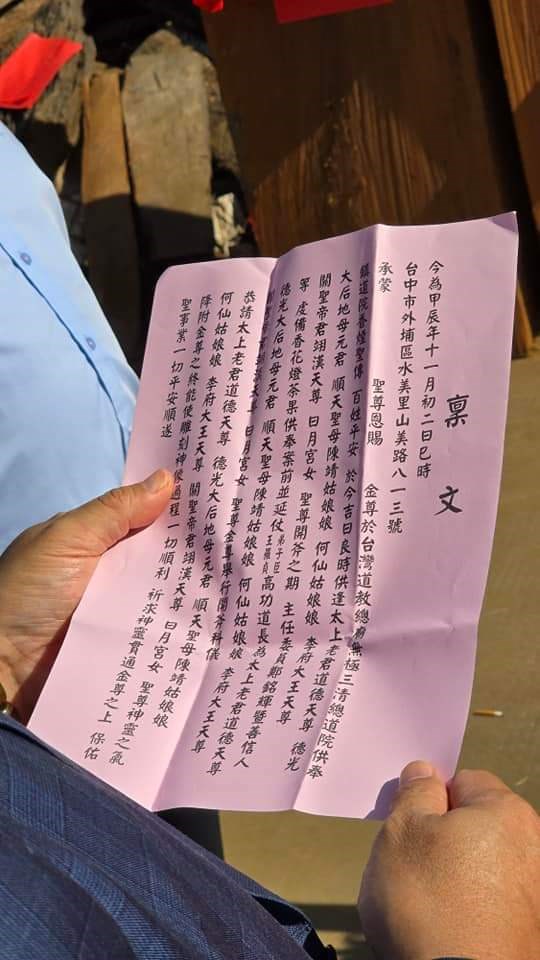 稟文
今為甲辰年十一月初二日巳時
台中市外埔區水美里山美路八一三號
承蒙
聖尊恩賜 金尊於台灣道教總廟無極三清總道院供奉
鎮道院香煌聖傳 百姓平安 於今吉日良時供逢太上老君道德天尊 德光
大后地母元君 順天聖母陳靖姑娘娘 何仙姑娘娘 李府大王天尊
關聖帝君翊漢天尊 日月宮女 聖尊開斧之期 主任委員鄭銘輝暨善信人
等 虔備香花燈茶果供奉案前並延仗弟子臣王羅貞高功道長為太上老君道德天尊
德光大后地母元君 順天聖母陳靖姑娘娘 何仙姑娘娘 李府大王天尊
天尊 日月宮女 聖尊金尊舉行開斧科儀
恭請太上老君道德天尊 德光大后地母元君 順天聖母陳靖姑娘娘
何仙姑娘娘 李府大王天尊 關聖帝君翊漢天尊 日月宮女 聖尊神靈之氣
降附金尊之終能使雕刻神像過程一切順利 祈求神靈貫通金尊之上 保佑
聖事業一切平安順遂